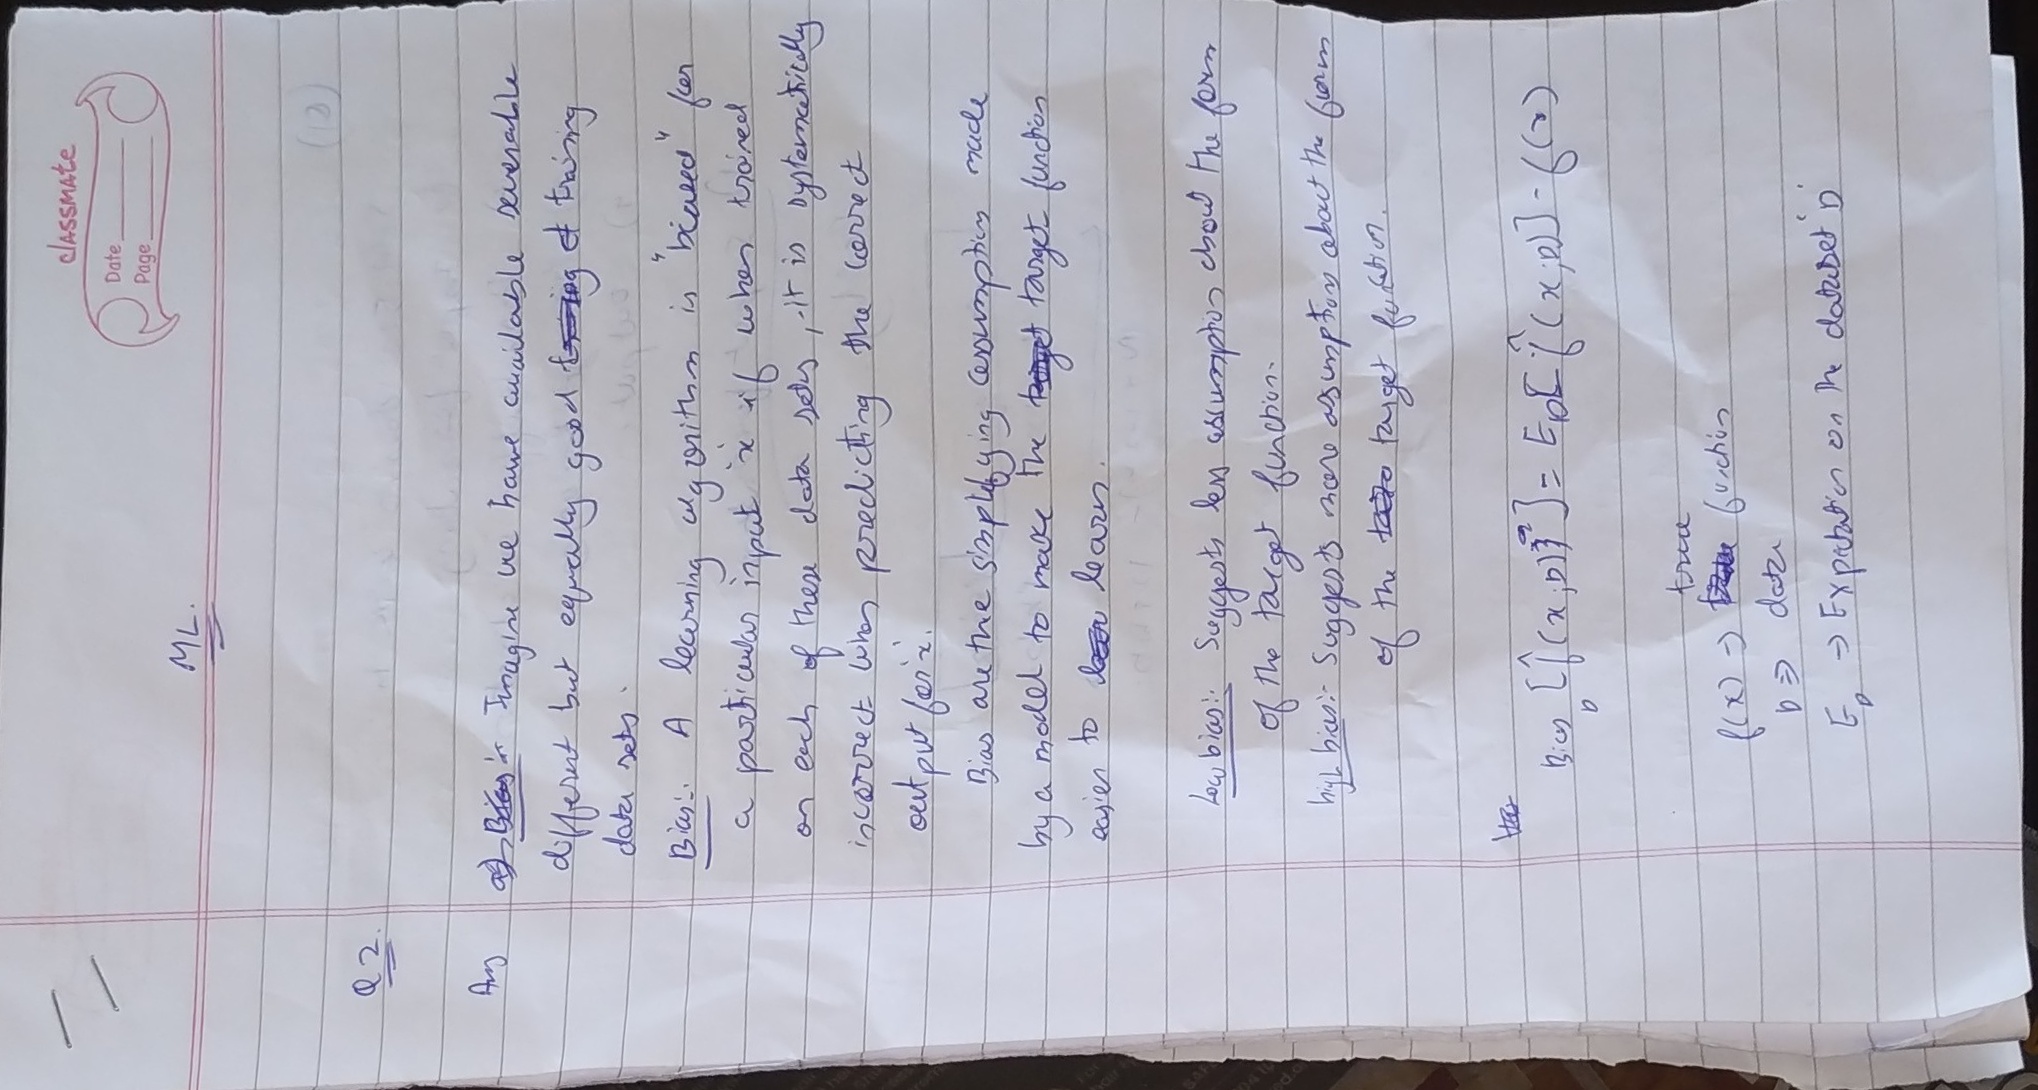 classmate
Date
Page
ML.
Q2.
Ans Imagine we have available severable
different but equally good of traing
data sets.
Bias:- A learning algorithm is "biased" for
a particular input 'x' if when trained
on each of these data sets, it is systematically
incorrect when predicting the correct
output for 'x'.
Bias are the simplifying assumption made
by a model to make the target function
easier to learn.
Low bias:- Suggests less assumption about the form
of the target function.
high bias:- Suggests more assumption about the form
of the target function.
Bias_D [f̂(x;D)] = E_D[f̂(x;D)] - f(x)
f(x) → true function
D ⇒ data
E_D → Expectation on the dataset 'D'